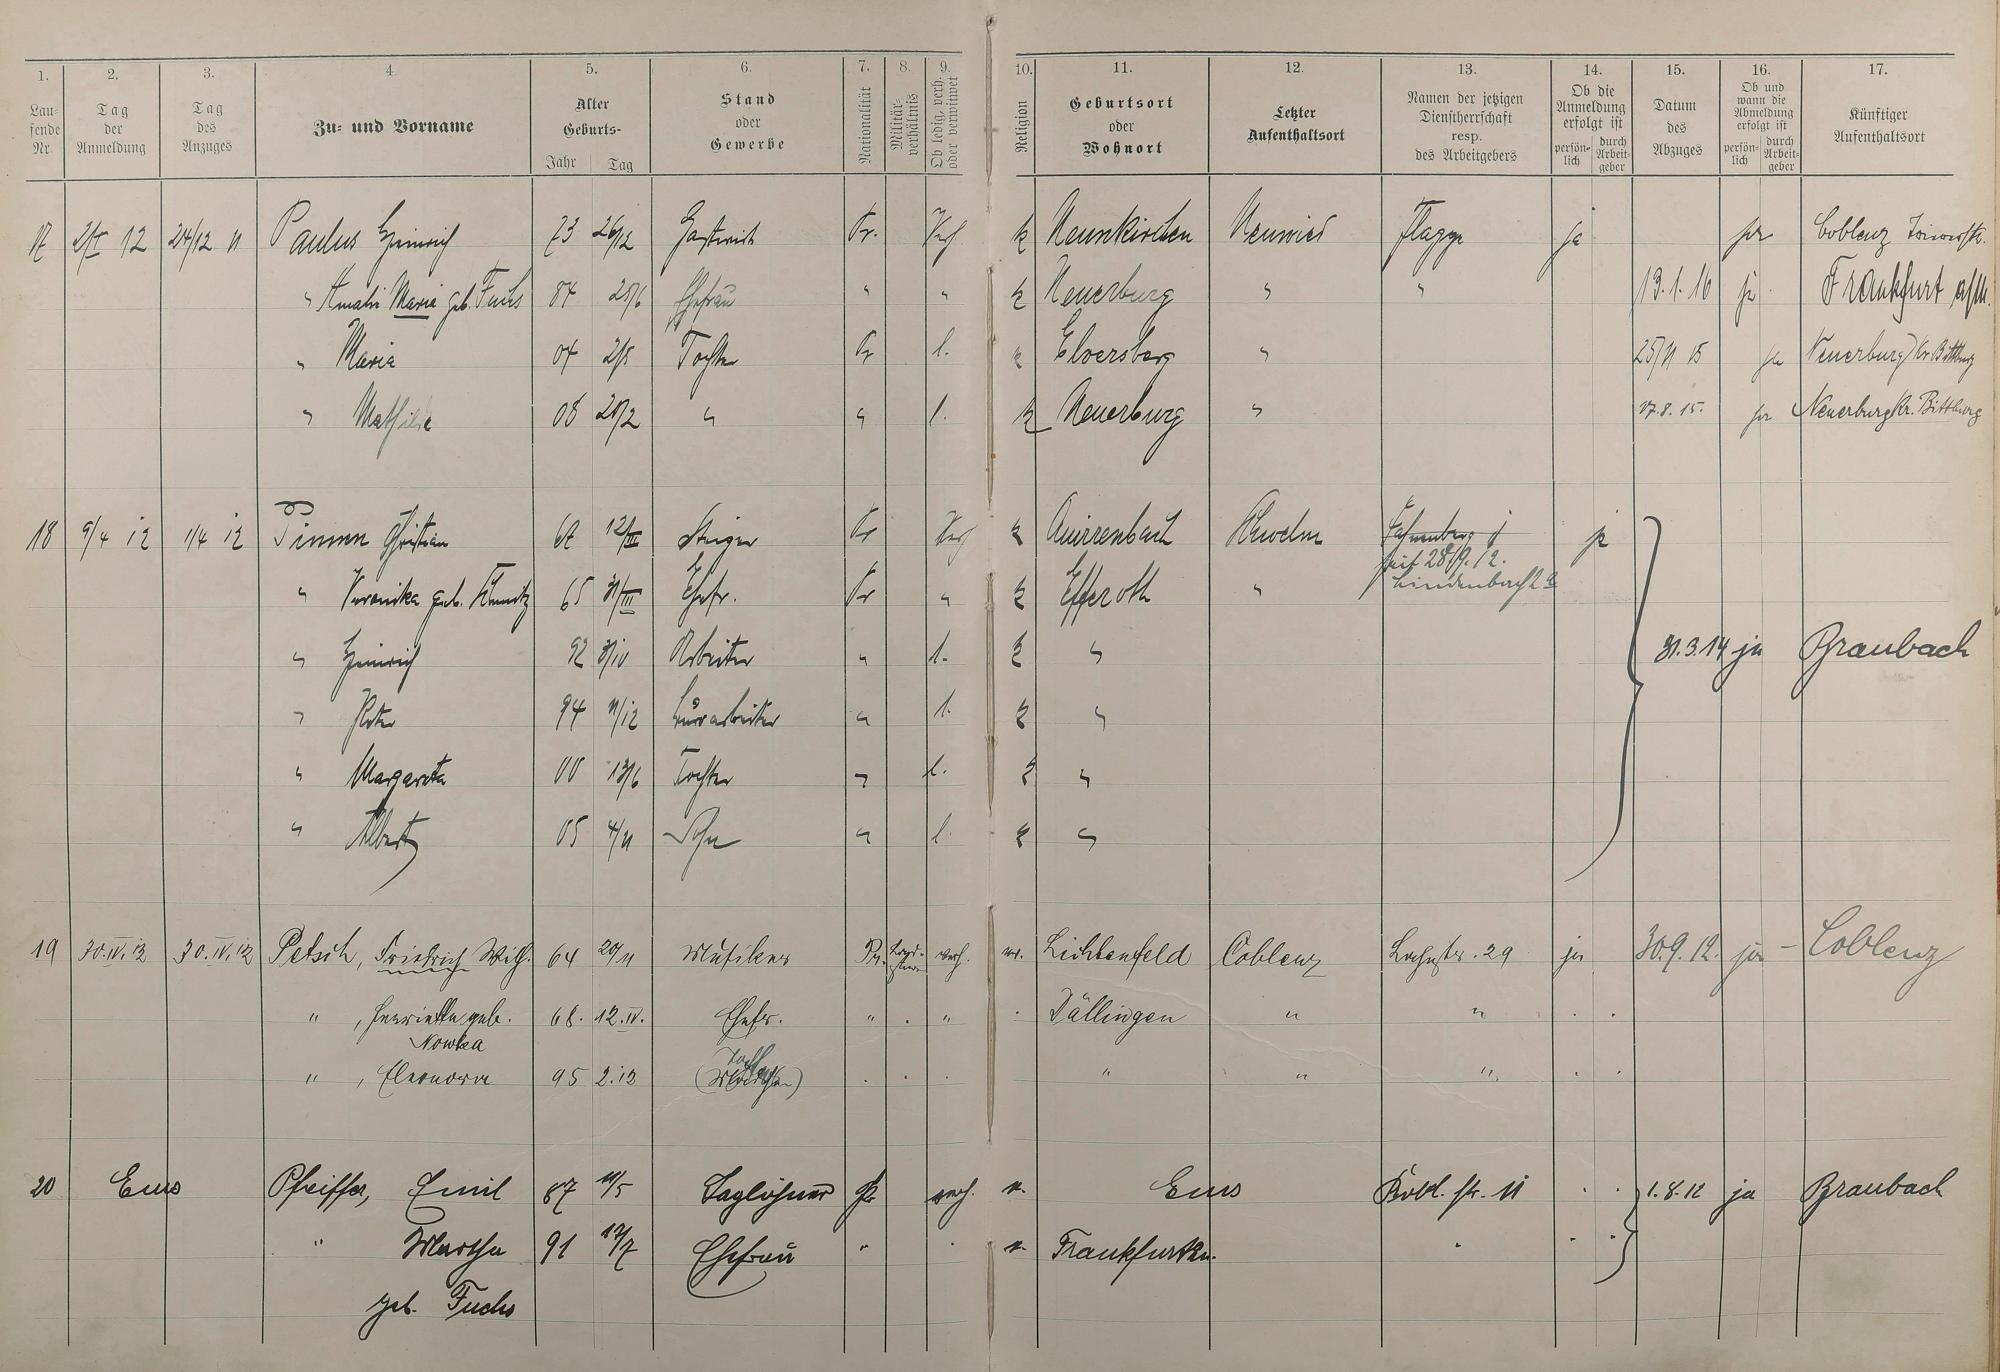 1. 2. 3. 4. 5. 6. 7. 8. 9. 10. 11. 12. 13. 14. 15. 16. 17.
Lau-
fende
Nr.
Tag
der
Anmeldung
Tag
des
Anzuges
Zu- und Vorname
Alter
Geburts-
Jahr Tag
Stand
oder
Gewerbe
Nationalität
Militär-
verhältnis
Ob ledig, verh.
oder verwitwet
Religion
Geburtsort
oder
Wohnort
Letzter
Aufenthaltsort
Namen der jetzigen
Dienstherrschaft
resp.
des Arbeitgebers
Ob die
Anmeldung
erfolgt ist
persön-
lich
durch
Arbeit-
geber
Datum
des
Abzuges
Ob und
wann die
Abmeldung
erfolgt ist
persön-
lich
durch
Arbeit-
geber
Künftiger
Aufenthaltsort
17 2/I 12 24/12 11 Paulus Heinrich 73 26/12 Gastwirt Pr. Verh k Neunkirchen Neuwied Flagge ja ja Coblenz
" Amalie Maria geb. Fuchs 84 25/6 Ehefrau " " k Neuerburg " " 13.1.16 ja Frankfurt a/M.
" Maria 04 2/5 Tochter Pr l. k Elversberg " 25/11 15 ja Neuerburg Kr. Bittburg
" Mathilde 08 20/2 " " l. k Neuerburg " 17.8.15. ja Neuerburg Kr. Bittburg
18 9/4 12 1/4 12 Pinnen Christian 12/III Steiger Pr Verh k Quirrenbach Schwelm Fahnenberg ja
seit 28/9.12.
" Veronika geb. 65 31/III Ehefr. Pr " k Efferoth " Lindenbach
" Heinrich 92 3/IV Arbeiter " l. k " 31.3.14 ja Braubach
" Peter 94 11/12 " l. k "
" Margareta 00 13/6 Tochter " l. k "
" Albert 05 4/11 Sohn " l. k "
19 30.IV.12 30.IV.12 Petsch, Friedrich Wilh. 64 20/11 Musiker Pr. verh. Lichtenfeld Coblenz 29 ja 30.9.12. ja – Coblenz
" , Henriette geb. 68. 12.IV. Ehefr. " . " Dällingen " "
Nowka
" , Eleonore 95 2.12 Tochter " " "
20 Ems Pfeiffer, Emil 87 11/5 Taglöhner Pr verh. Ems Kobl. str. 11 1.8.12 ja Braubach
" Martha 91 12/7 Ehefrau " Frankfurt "
geb. Fuchs